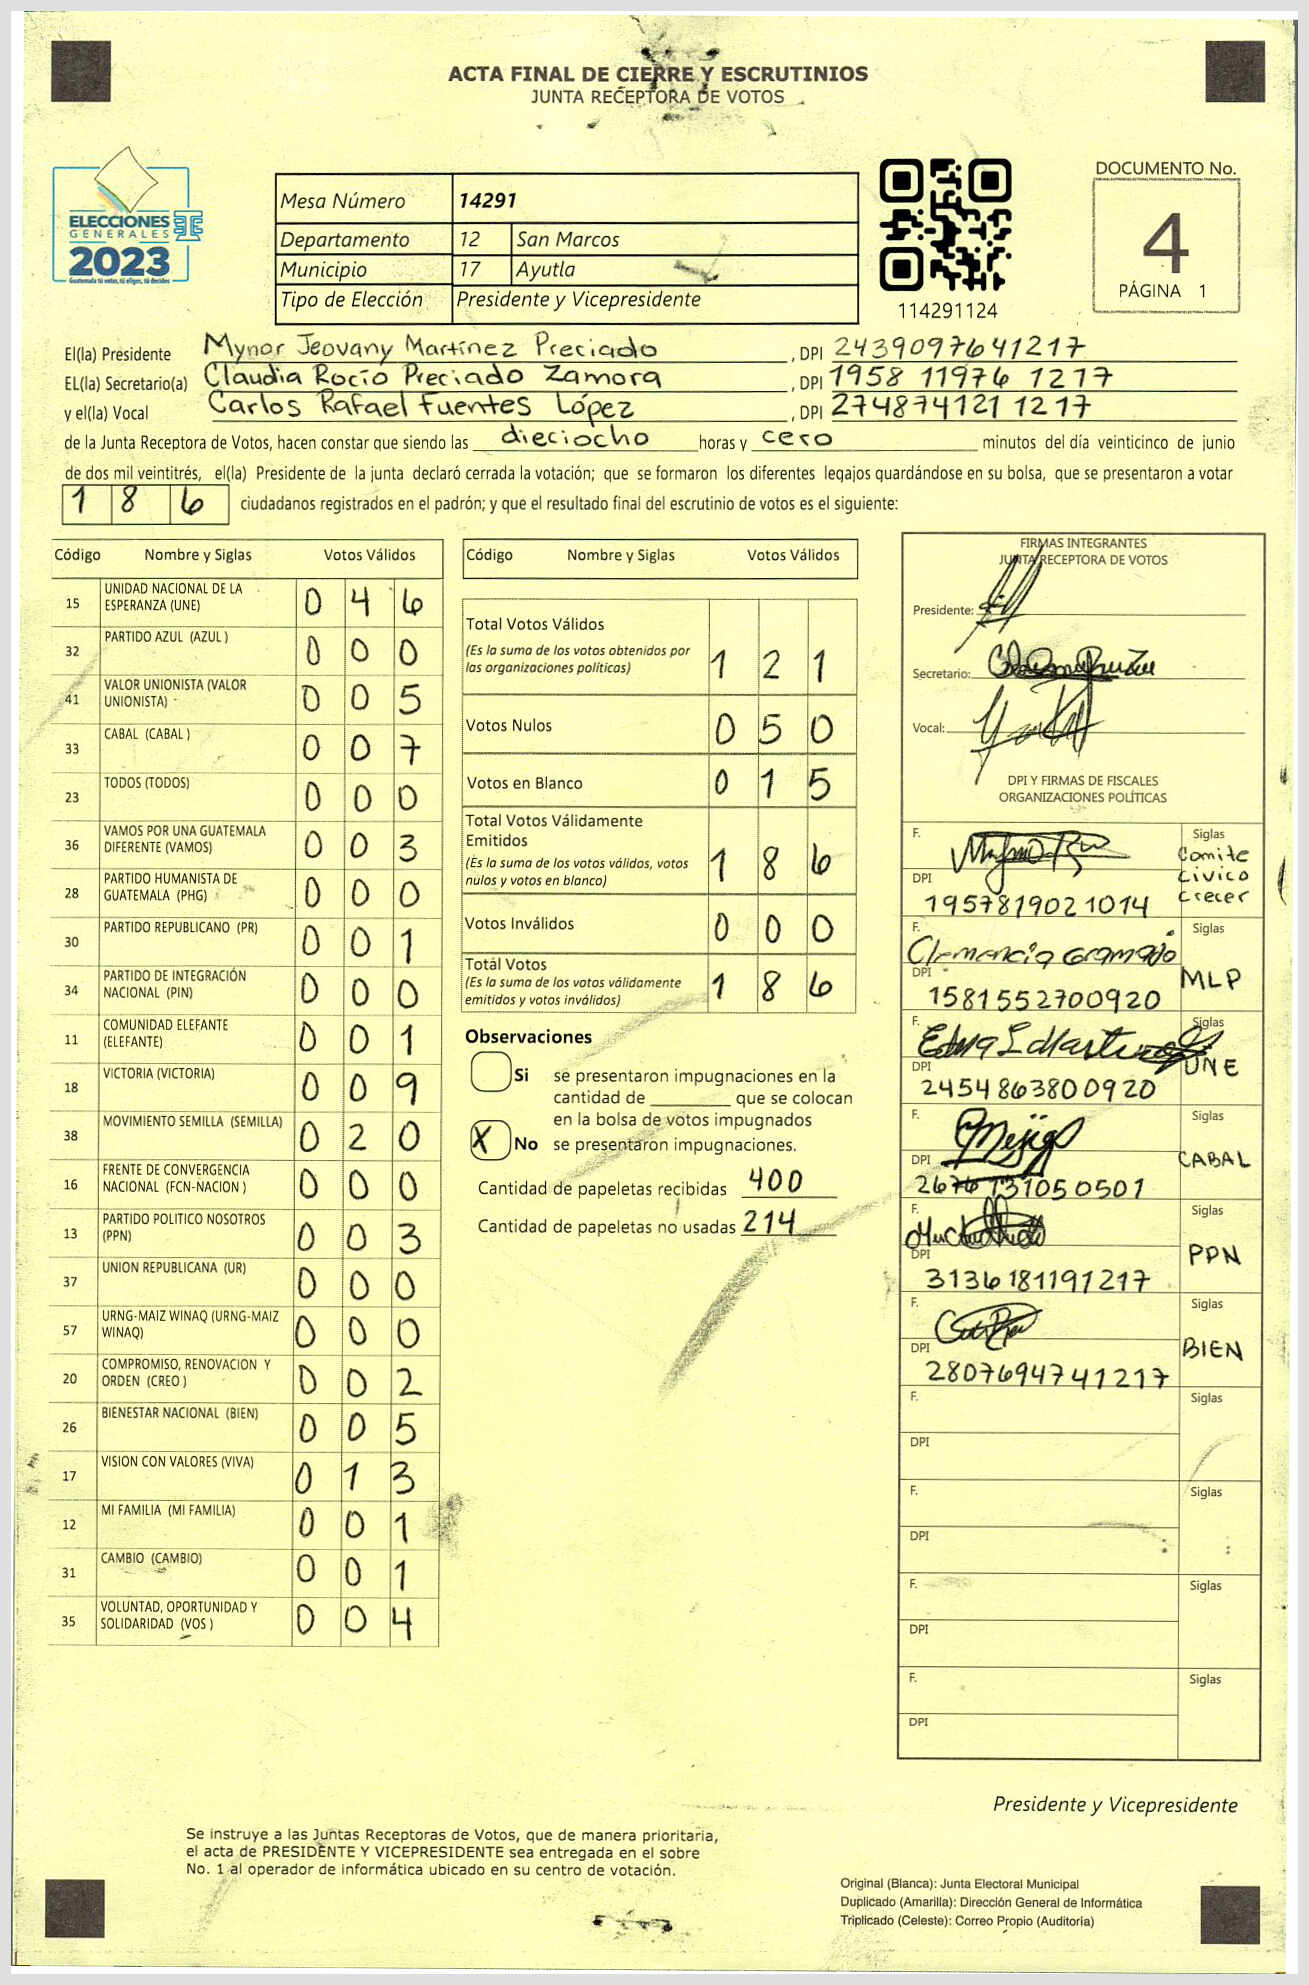 ACTA FINAL DE CIERRE Y ESCRUTINIOS
JUNTA RECEPTORA DE VOTOS
ELECCIONES
GENERALES
2023
Guatemala tú votas, tú eliges, tú decides
Mesa Número 14291
Departamento 12 San Marcos
Municipio 17 Ayutla
Tipo de Elección Presidente y Vicepresidente
114291124
DOCUMENTO No.
4
PÁGINA 1
El(la) Presidente Mynor Jeovany Martínez Preciado, DPI 2439097641217
EL(la) Secretario(a) Claudia Rocío Preciado Zamora, DPI 1958 11976 1217
y el(la) Vocal Carlos Rafael Fuentes López, DPI 274874121 1217
de la Junta Receptora de Votos, hacen constar que siendo las dieciocho horas y cero minutos del día veinticinco de junio
de dos mil veintitrés, el(la) Presidente de la junta declaró cerrada la votación; que se formaron los diferentes legajos quardándose en su bolsa, que se presentaron a votar
186 ciudadanos registrados en el padrón; y que el resultado final del escrutinio de votos es el siguiente:
Código Nombre y Siglas Votos Válidos
15 UNIDAD NACIONAL DE LA ESPERANZA (UNE) 0 4 6
32 PARTIDO AZUL (AZUL ) 0 0 0
41 VALOR UNIONISTA (VALOR UNIONISTA) 0 0 5
33 CABAL (CABAL ) 0 0 7
23 TODOS (TODOS) 0 0 0
36 VAMOS POR UNA GUATEMALA DIFERENTE (VAMOS) 0 0 3
28 PARTIDO HUMANISTA DE GUATEMALA (PHG) 0 0 0
30 PARTIDO REPUBLICANO (PR) 0 0 1
34 PARTIDO DE INTEGRACIÓN NACIONAL (PIN) 0 0 0
11 COMUNIDAD ELEFANTE (ELEFANTE) 0 0 1
18 VICTORIA (VICTORIA) 0 0 9
38 MOVIMIENTO SEMILLA (SEMILLA) 0 2 0
16 FRENTE DE CONVERGENCIA NACIONAL (FCN-NACION ) 0 0 0
13 PARTIDO POLITICO NOSOTROS (PPN) 0 0 3
37 UNION REPUBLICANA (UR) 0 0 0
57 URNG-MAIZ WINAQ (URNG-MAIZ WINAQ) 0 0 0
20 COMPROMISO, RENOVACION Y ORDEN (CREO ) 0 0 2
26 BIENESTAR NACIONAL (BIEN) 0 0 5
17 VISION CON VALORES (VIVA) 0 1 3
12 MI FAMILIA (MI FAMILIA) 0 0 1
31 CAMBIO (CAMBIO) 0 0 1
35 VOLUNTAD, OPORTUNIDAD Y SOLIDARIDAD (VOS ) 0 0 4
Código Nombre y Siglas Votos Válidos
Total Votos Válidos
(Es la suma de los votos obtenidos por
las organizaciones políticas) 1 2 1
Votos Nulos 0 5 0
Votos en Blanco 0 1 5
Total Votos Válidamente
Emitidos
(Es la suma de los votos válidos, votos
nulos y votos en blanco) 1 8 6
Votos Inválidos 0 0 0
Total Votos
(Es la suma de los votos válidamente
emitidos y votos inválidos) 1 8 6
Observaciones
Si se presentaron impugnaciones en la
cantidad de ________ que se colocan
en la bolsa de votos impugnados
X No se presentaron impugnaciones.
Cantidad de papeletas recibidas 400
Cantidad de papeletas no usadas 214
FIRMAS INTEGRANTES
JUNTA RECEPTORA DE VOTOS
Presidente:
Secretario:
Vocal:
DPI Y FIRMAS DE FISCALES
ORGANIZACIONES POLÍTICAS
F. Siglas
Comite
Civico
Crecer
DPI
1957819021014
F. Clemencia Gramajo Siglas
DPI MLP
1581552700920
F. Siglas
DPI UNE
2454863800920
F. Siglas
DPI CABAL
2676131050501
F. Siglas
DPI PPN
3136181191217
F. Siglas
DPI BIEN
2807694741217
F. Siglas
DPI
F. Siglas
DPI
F. Siglas
DPI
F. Siglas
DPI
Presidente y Vicepresidente
Se instruye a las Juntas Receptoras de Votos, que de manera prioritaria,
el acta de PRESIDENTE Y VICEPRESIDENTE sea entregada en el sobre
No. 1 al operador de informática ubicado en su centro de votación.
Original (Blanca): Junta Electoral Municipal
Duplicado (Amarilla): Dirección General de Informática
Triplicado (Celeste): Correo Propio (Auditoría)